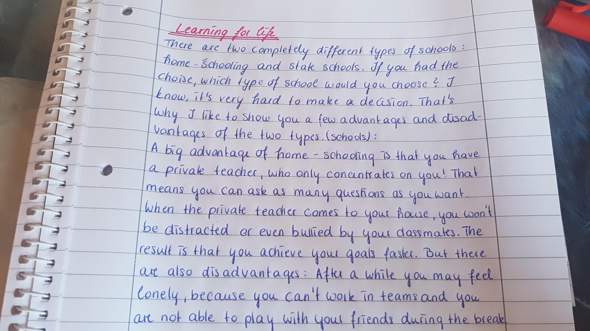 Learning for life
There are two completely different types of schools:
home-schooling and state schools. If you had the
choise, which type of school would you choose? I
know, it's very hard to make a decision. That's
why I like to show you a few advantages and disad-
vantages of the two types.(schools):
A big advantage of home-schooling is that you have
a private teacher, who only concentrates on you! That
means you can ask as many questions as you want.
When the private teacher comes to your house, you won't
be distracted or even bullied by your classmates. The
result is that you achieve your goals faster. But there
are also disadvantages: After a while you may feel
lonely, because you can't work in teams and you
are not able to play with your friends during the break